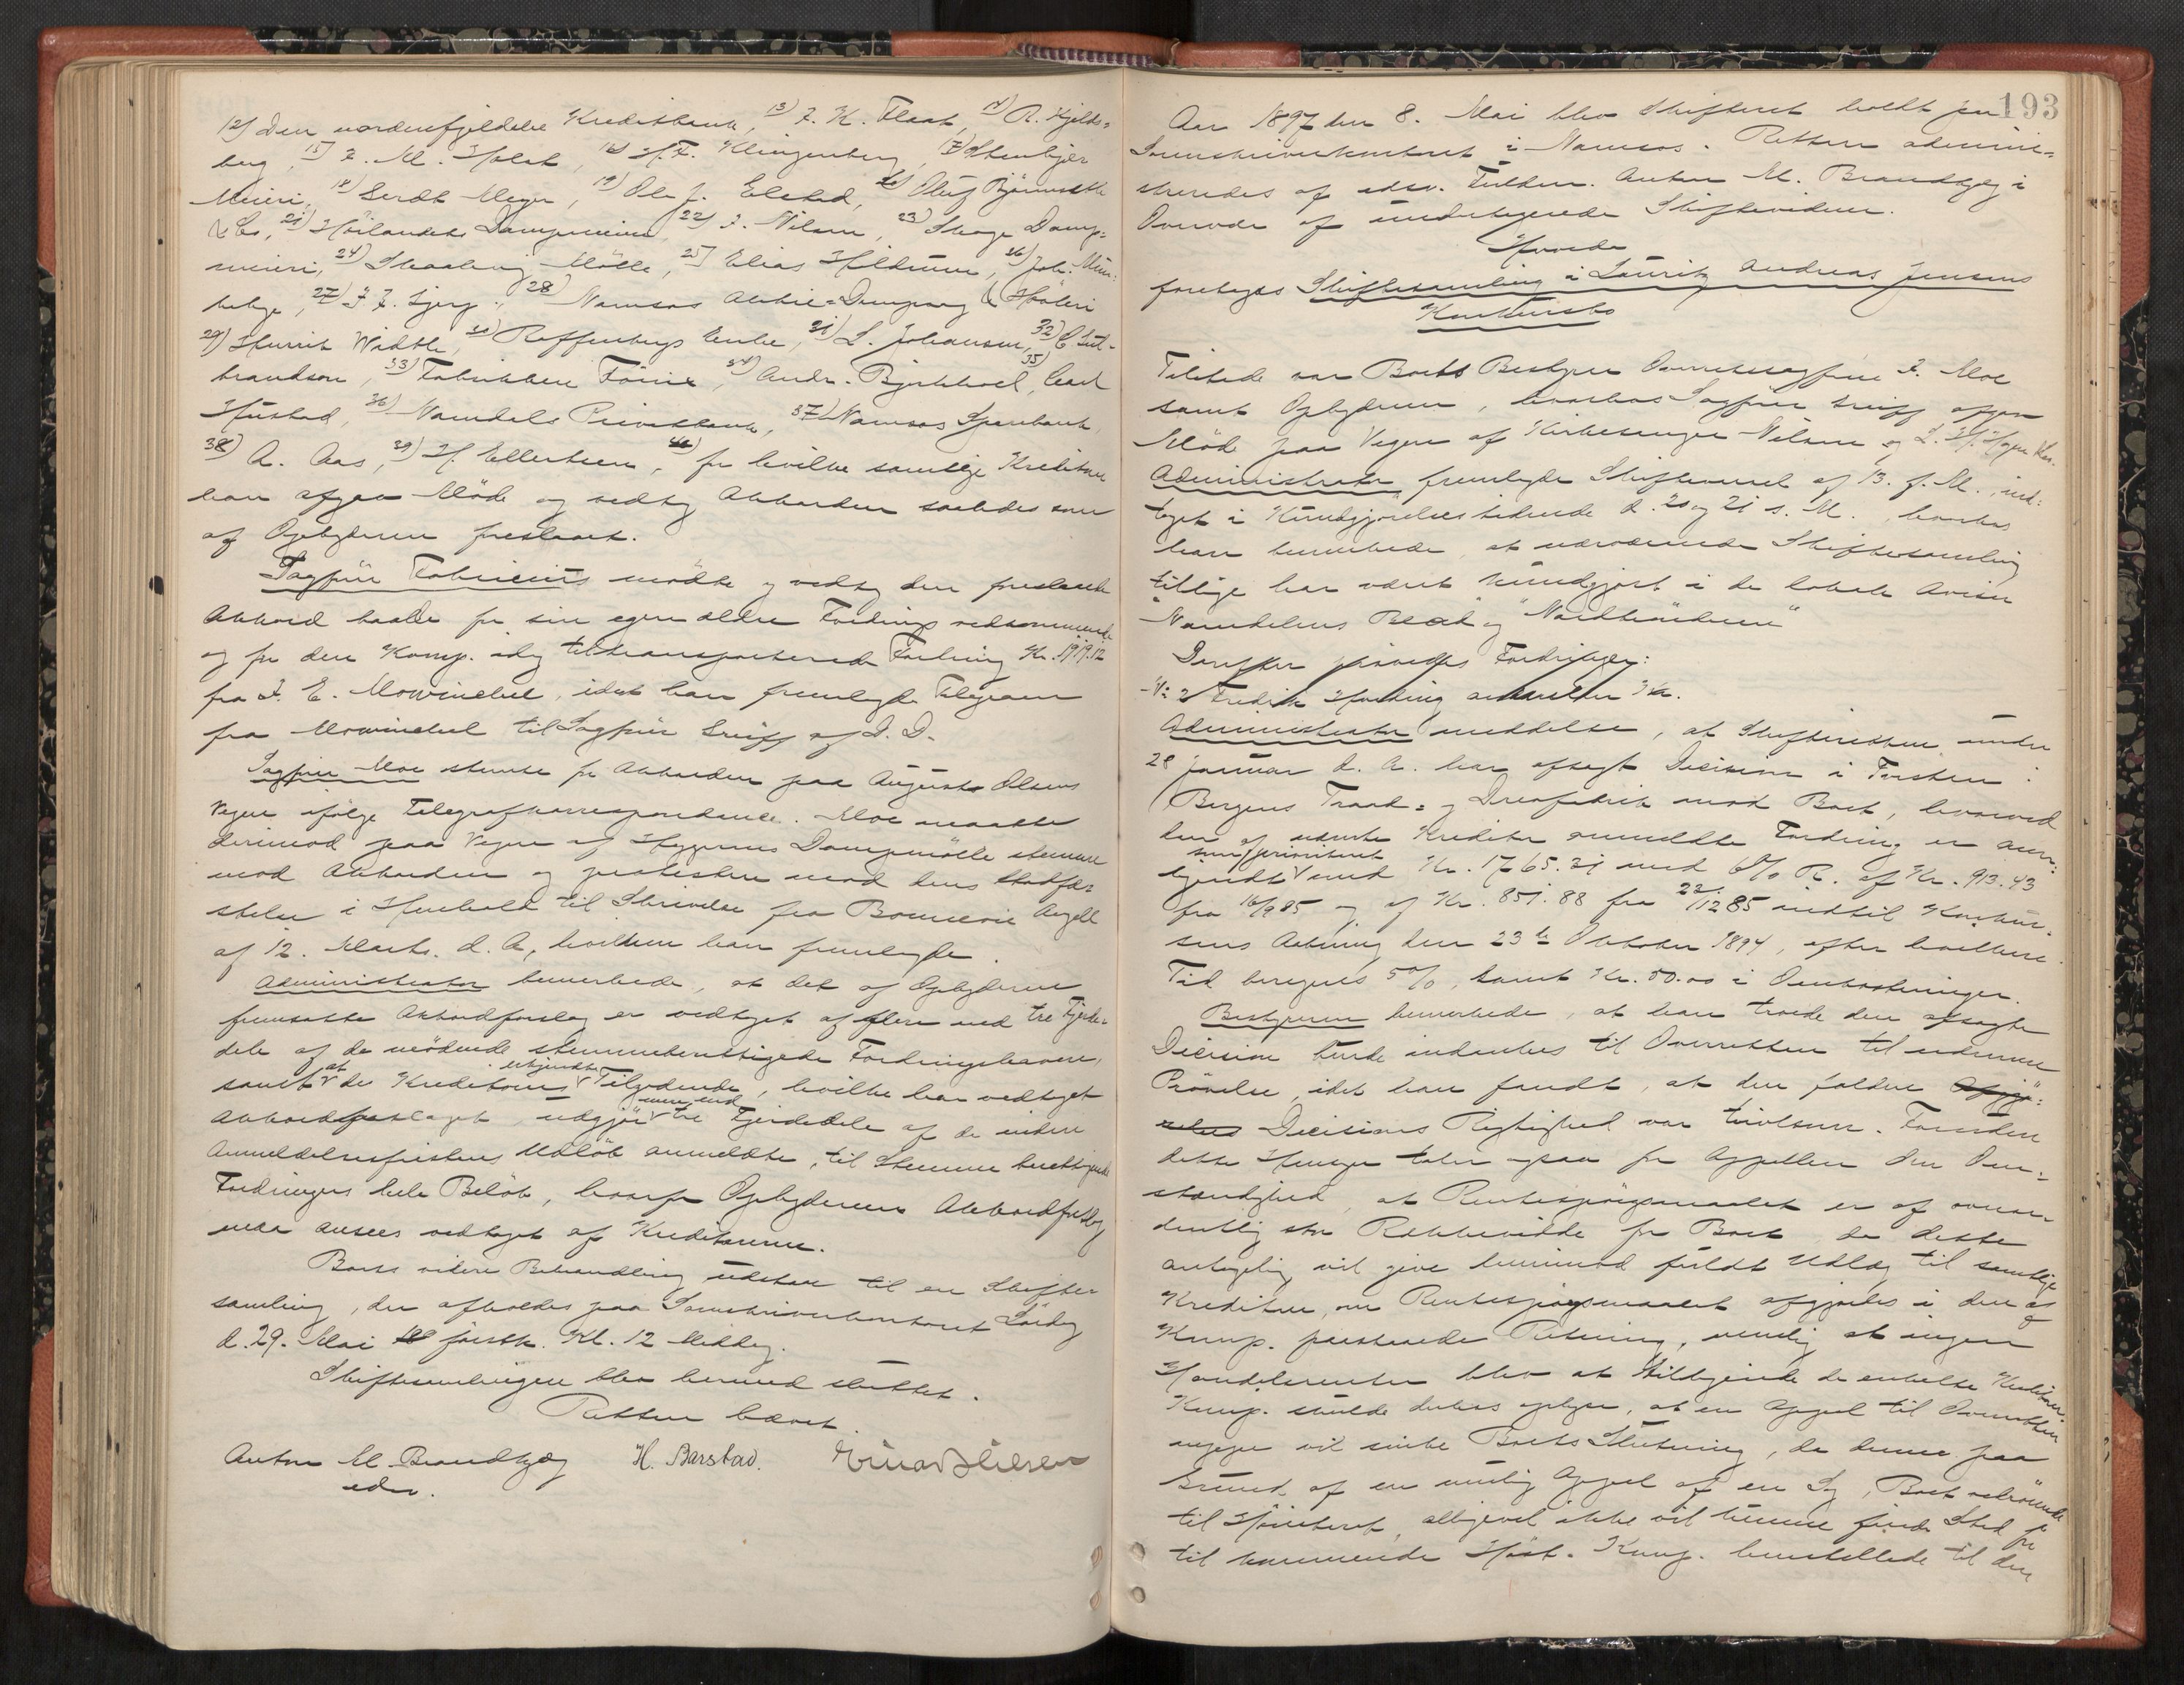 12) Den nordenfjeldske Kreditbank, 13) F. K. Flaat, 14) A. Kjelds-
berg, 15) F. M. Holst, 16) H. F. Klingenberg, 17) Stenkjer
Meieri, 18) Gerdt Meyer, 19) Ole J. Elstad, 20) Oluf Bjørnseth
& Co, 21) Høilandets Dampmeieri, 22) J. Nilsen, 23) Skage Damp-
meieri, 24) Skaalvig Mölle, 25) Elias Hildrum, 26) Joh.
27) F. F. 28) Namsos Aktie-Dampsag & Høvleri
29) Henrik Widthe, 30) Enke, 31) L. Johansen, 32) C. Gul-
brandson, 33) Fabrikken Fönix, 34) Andr. Bjerkhoel, 35) Carl
Hustad, 36) Namdals Privatbank, 37) Namsos Sparebank,
38) A. Aas, 39) H. Ellertsen, for hvilke samtlige Kreditorer
han afgav Möde og vedtog Akkorden saaledes som
af Opbyderen foreslaaet.
Sagfører Fabricius mødte og vedtog den foreslaaede
Akkord baade for sin egen ældre Fordrings vedkommende
og for den Komp. idag tiltransporterede Fordring Kr. 1919.12
fra J. E. Mowinckel, idet han fremlagde Telegram
fra Mowinckel til Sagfører Greiff af D. D.
Sagfører Moe stemte for Akkorden paa August Olsens
Vegne ifølge Telegrafkorrespondance. Moe maatte
derimod paa Vegne af Dampmölle stemme
mod Akkorden og protestere mod dens Stadfæ-
stelse i Henhold til Skrivelse fra Angell
af 12. Marts d. A., hvilken han fremlagde.
Administrator bemærkede, at det af Opbyderen
fremsatte Akkordforslag er vedtaget af flere end tre Fjerde-
dele af de mødende stemmeberettigede Fordringshavere,
samt at de Kreditorers erkjendte Tilgodehavende, hvilke har vedtaget
Akkordforslaget, udgjør mer end tre Fjerdedele af de inden
Anmeldelsesfristens Udløb anmeldte, til Stemme berettigende
Fordringers hele Beløb, hvorfor Opbyderens Akkordforslag
maa ansees vedtaget af Kreditorerne.
Boets videre Behandling udstaar til en Skifte-
samling, der afholdes paa Sorenskriverkontoret Lørdag
d. 29. Mai førstk. Kl. 12 Middag.
Skiftesamlingen blev hermed sluttet.
Retten hævet
Anton M. Brandtzæg H. Barstad. Einar Nilsen
edsv.
193
Aar 1897 den 8. Mai blev Skifteret holdt paa
Sorenskriverkontoret i Namsos. Retten admini-
streredes af edsv. Fuldm. Anton M. Brandtzæg i
Overvær af undertegnede Skiftevidner.
Hvorda
foretoges Skiftesamling i Lauritz Andreas Jensens
Konkursbo
Tilstede var Boets Bestyrer Overretssagfører F. Moe
samt Opbyderen, hvorhos Sagfører Greiff afgav
Möde paa Vegne af Kirkesanger Nilsen og L. H.
Administrator fremlagde Skiftevarsel af 13. f. M., ind-
taget i Kundgjørelsestidende d. 20 og 21 s. M., hvorhos
han bemærkede, at nærværende Skiftesamling
tillige har været kundgjort i de lokale Aviser
"Namdalens Blad" og "Nordtrönderen"
Derefter prøvedes Fordringer:
N: 2 Fredrik
Administrator meddelte, at Skifteretten under
28 Januar d. A. har afsagt Decision i Tvisten:
Bergens Traad- og Drevfabrik mod Boet, hvorved
den af nævnte Kreditor anmeldte Fordring er aner-
kjendt som prioriteret med Kr. 1765.31 med 6% R. af Kr. 913.43
fra 16/9 85 og af Kr. 851.88 fra 22/12 85 indtil Konkur-
sens Aabning den 23de Oktober 1894, efter hvilken
Tid beregnes 5%, samt Kr. 50.00 i Omkostninger.
Bestyreren bemærkede, at han troede den afsagte
Decision burde indankes til Overretten til nærmere
Prøvelse, idet han fandt, at den faldne Afgjö-
relses Decisions Rigtighed var tvivlsom. Foruden
dette Hensyn taler ogsaa for Appellen den Om-
stændighed, at Rentespørgsmaalet er af overor-
dentlig stor Rækkevidde for Boet, da dette
antagelig vil give henimod fuldt Udlæg til samtlige
Kreditorer, om Rentespørgsmaalet afgjøres i den af
Komp. paastaaede Retning, nemlig at ingen
Handelsrenter blev at tilkjende de enkelte Kreditorer.
Komp. skulde derhos oplyse, at en Appel til Overretten
neppe vil sinke Boets Slutning, da denne paa
Grund af en mulig Appel af en Sag, Boet vedrørende
til Høiesteret, alligevel ikke vil kunne finde Sted før
til kommende Høst. Komp. henstillede til den